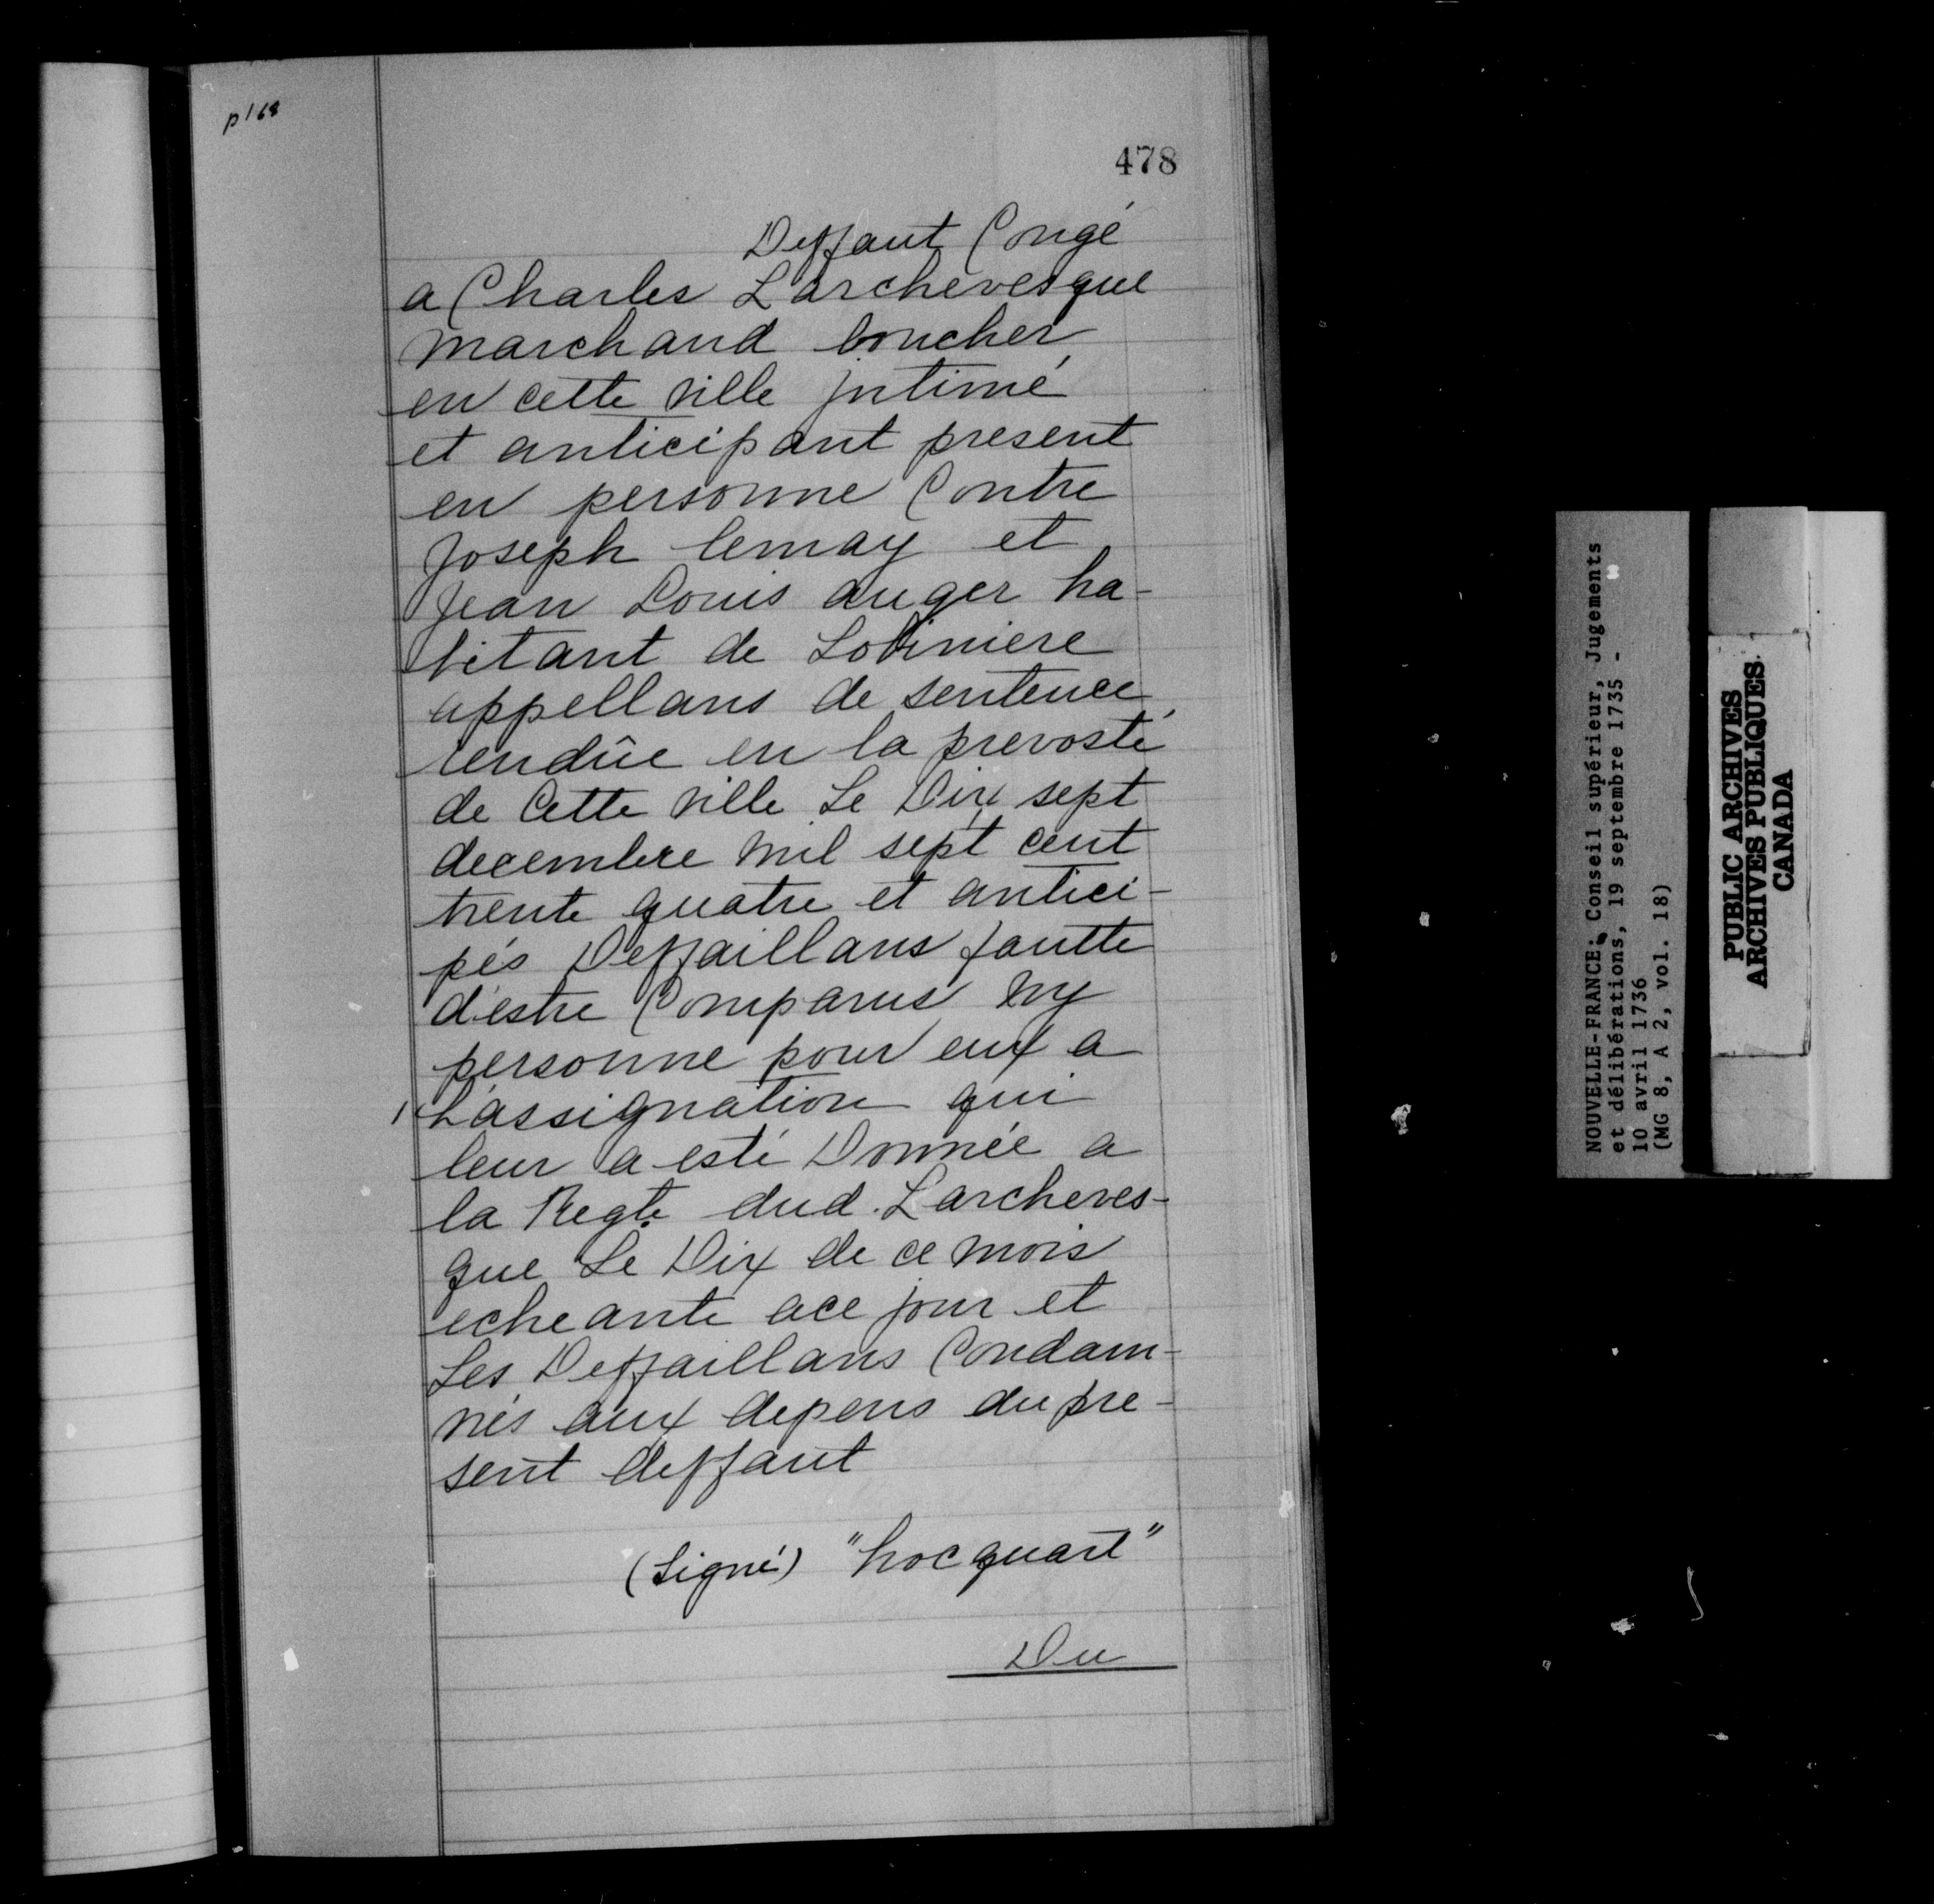 p168
478
Deffaut Congé
a Charles Larchevesque
marchand boucher
en cette ville jntimé
et anticipant present
en personne Contre
Joseph lemay et
Jean Louis auger ha-
bitant de Lobiniere
appellans de sentence
rendüe en la prevosté
de Cette ville Le Dix sept
decembre mil sept cent
trente quatre et antici-
pés Deffaillans fautte
d'estre Comparus ny
personne pour eux a
L'assignation qui
leur a esté Donnée a
la Reqte dud. Larcheves-
que Le Dix de ce mois
echeante ace jour et
Les Deffaillans Condam-
nés aux depens du pre-
sent deffaut
(Signé) "hocquart"
Du
NOUVELLE-FRANCE: Conseil supérieur, Jugements
et délibérations, 19 septembre 1735 -
10 avril 1736
(MG 8, A 2, vol. 18)
PUBLIC ARCHIVES
ARCHIVES PUBLIQUES
CANADA